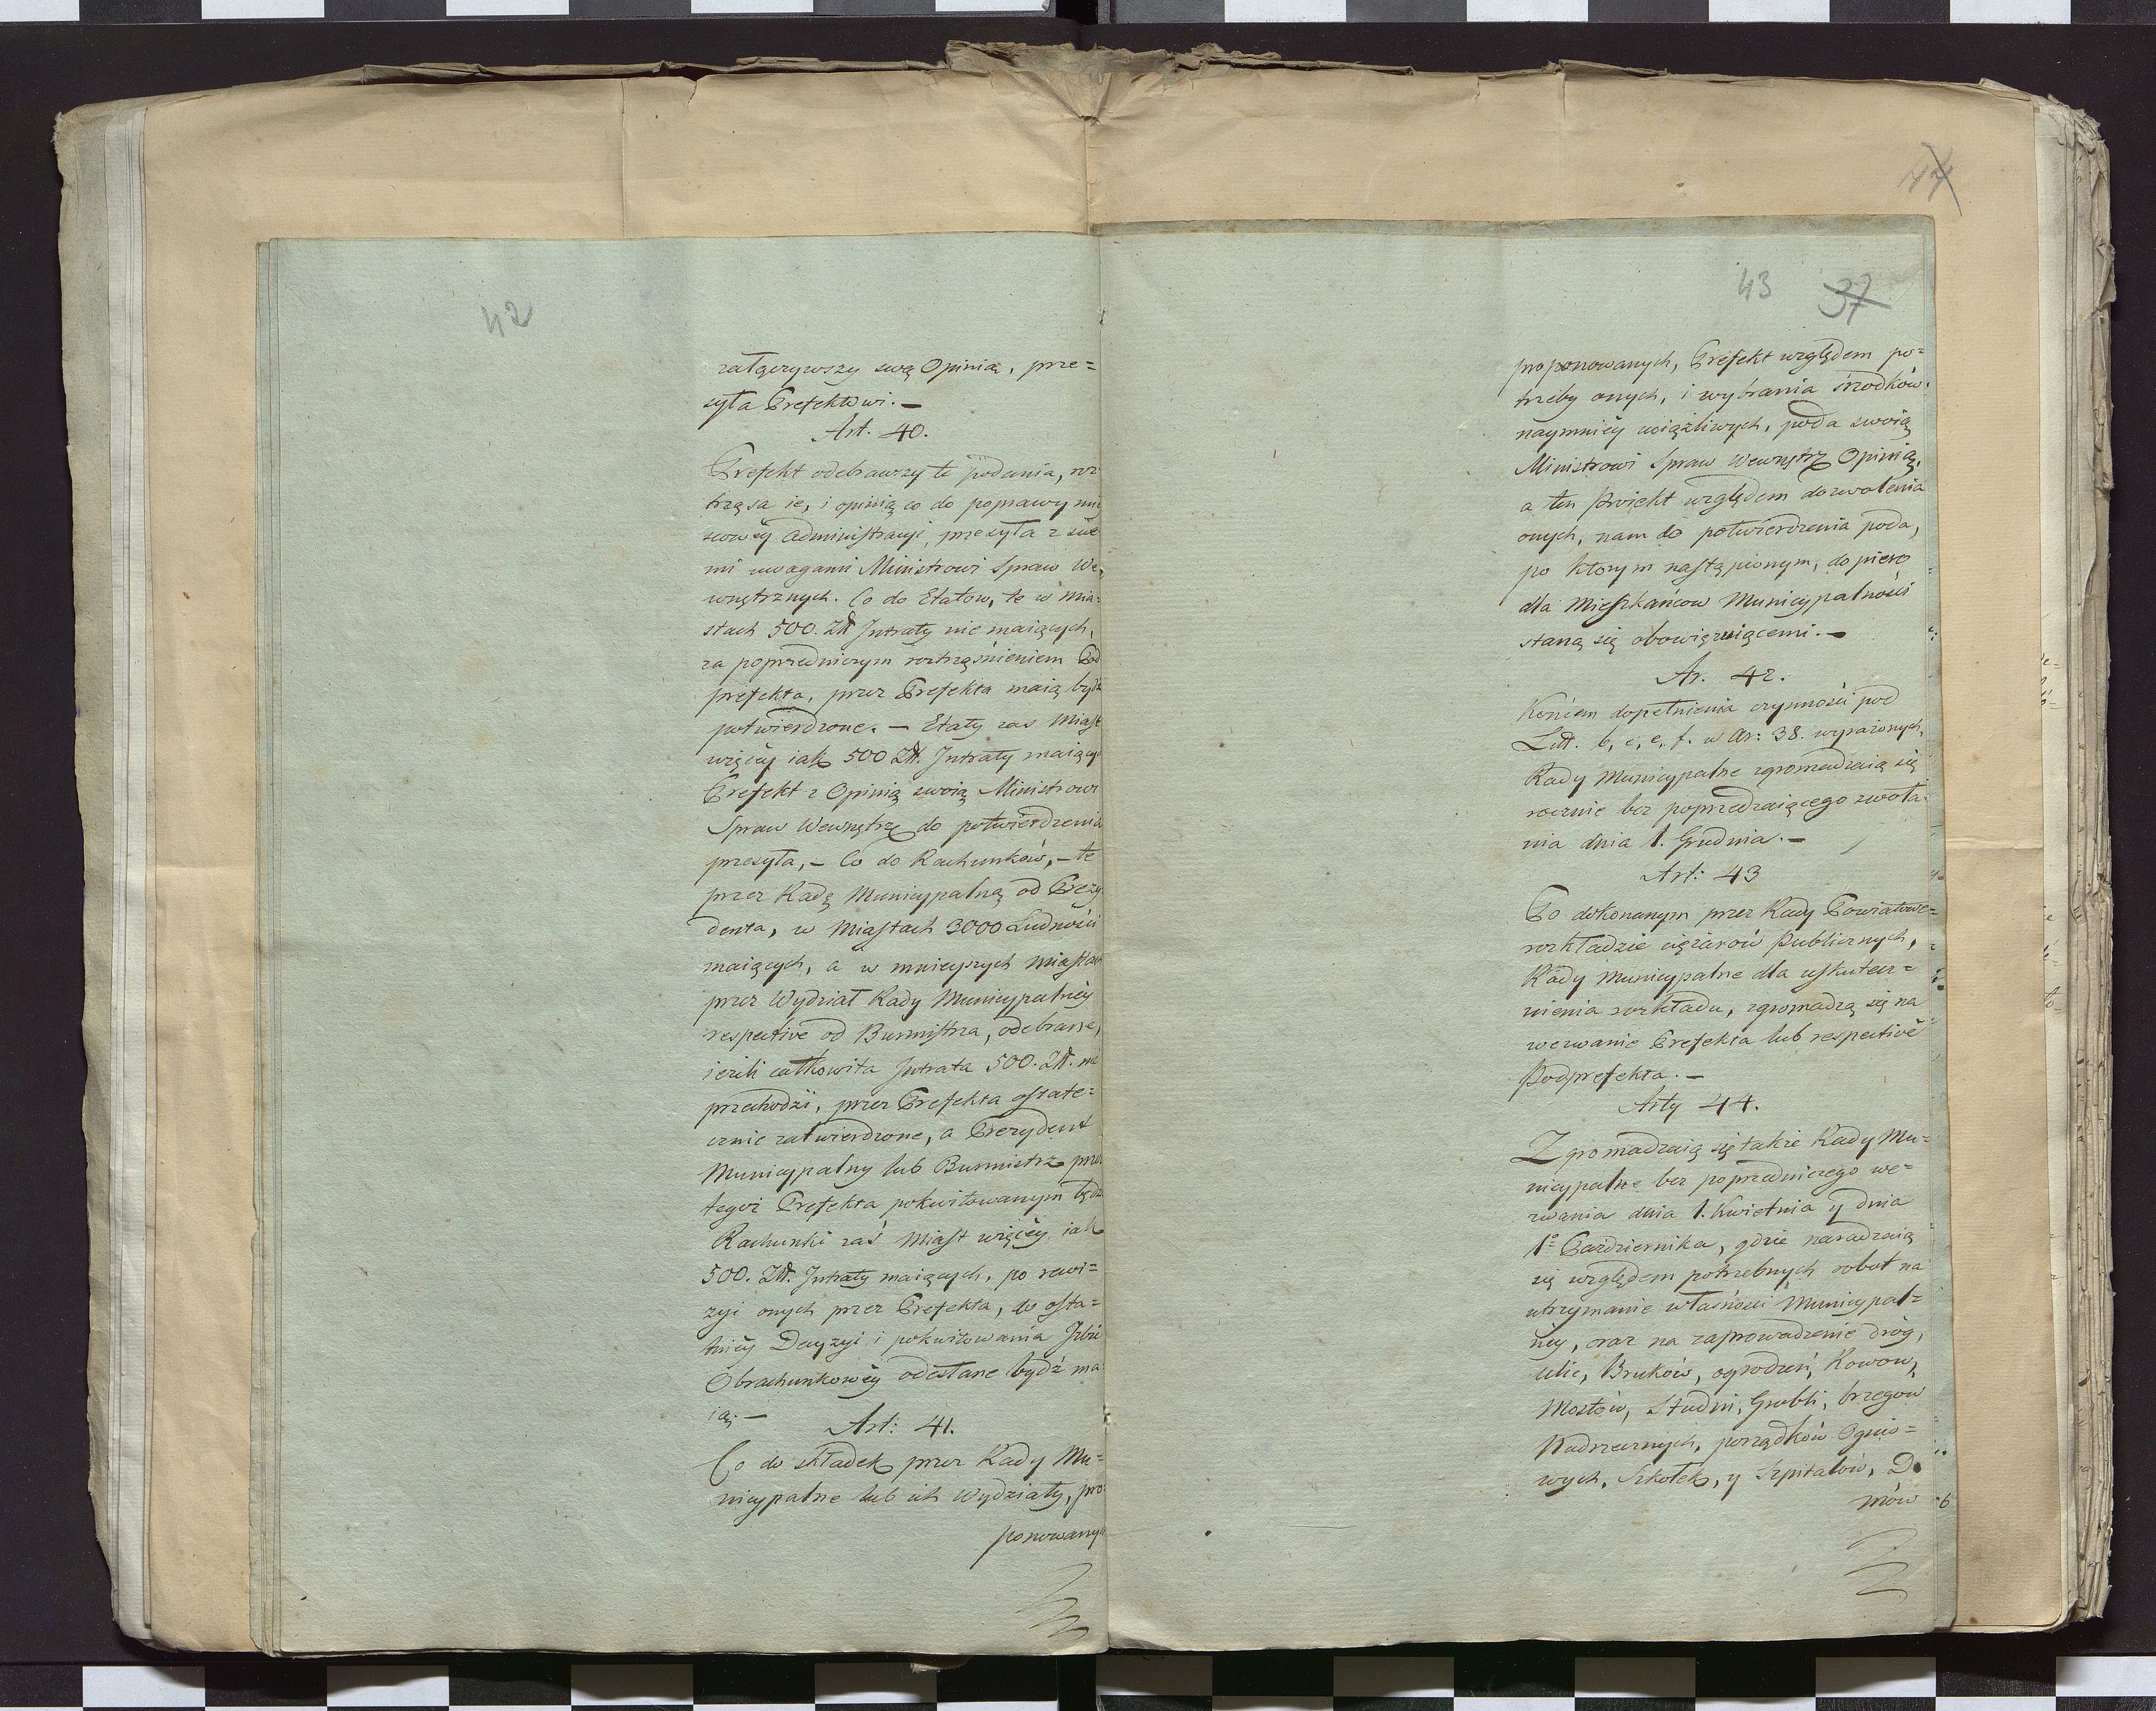 42
załączywszy swą Opinią, prze=
syła Prefektowi. —
Art. 40.
Prefekt odebrawszy te podania, roz
trząsa ie, i opinią co do poprawy miey
scowéy administracyi, przesyła z swe
mi uwagami Ministrowi Spraw We,
wnętrznych. Co do Etatow, te w Mia=
stach 500. Zł Jntraty nie maiących,
za poprzedniczym roztrząśnieniem Pod
prefekta, przez Prefekta maią bydź
potwierdzone. — Etaty zas Miast
więcéy iak 500 Zł. Jntraty maiący
Prefekt z Opinią swoią Ministrowi
Spraw Wewnętrz do potwierdzenia
przesyła, — Co do Rachunków, — te
przez Radę Municypalną od Prezy
denta, w Miastach 3000 Ludności
maiących, a w mnieyszych miastach
przez Wydział Rady Municypalnéy
respective od Burmistrza, odebrane,
ieżli całkowita Jntrata 500. Zł. nie
przechodzi, przez Prefekta ostate=
cznie zatwierdzone, a Prezydent
Municypalny lub Burmistrz przez
tegoż Prefekta pokwitowanym będzie
Rachunki zaś Miast więcéy iak
500. Zł. Jntraty maiących, po rewi=
zyi onych przez Prefekta, do osta=
tniéy Decyzyi i pokwitowania Jzbie
Obrachunkowéy odesłane bydź ma
ią. —
Art: 41.
Co do składek przez Rady Mu=
nicypalne lub ich Wydziały, pro=
ponowanych
44
43 37
proponowanych, Prefekt względem po=
trzeby onych, i wybrania srzodków
naymniéy uciążliwych, poda swoią
Ministrowi Spraw Wewnętrz Opinią,
a ten Proiekt względem dozwolenia
onych, nam do potwierdzenia poda,
po ktorym nastąpionym, dopiero
dla Mieszkańcow Municypalności
staną się obowięzuiącemi. —
Ar. 42.
Końcem dopełnienia czynności pod
Litt. b, c, e, f. w Ar: 38. wyrażonych,
Rady Municypalne zgromadzaią się
rocznie bez poprzedzaiącego zwoła=
nia dnia 1. Grudnia. —
Art: 43
Po dokonanym przez Rady Powiatowe=
rozkładzie ciężarów Publicznych,
Rady Municypalne dla uskutecz=
nienia rozkładu, zgromadzą się na
wezwanie Prefekta lub respective
Podprefekta. —
Arty 44.
Zgromadzaią się także Rady Mu=
nicypalne bez poprzedniczego we=
zwania dnia 1. Kwietnia y dnia
1º Października, gdzie naradzaią
się względem potrzebnych robot na
utrzymanie własności Municypal=
néy, oraz na zaprowadzenie dróg,
ulic, Bruków, ogrodzeń, Rowow,
Mostów, Studni, Grobli, brzegow
Nadrzecznych, porządków Ognio=
wych, Szkołek, y Szpitalów, Do
mów